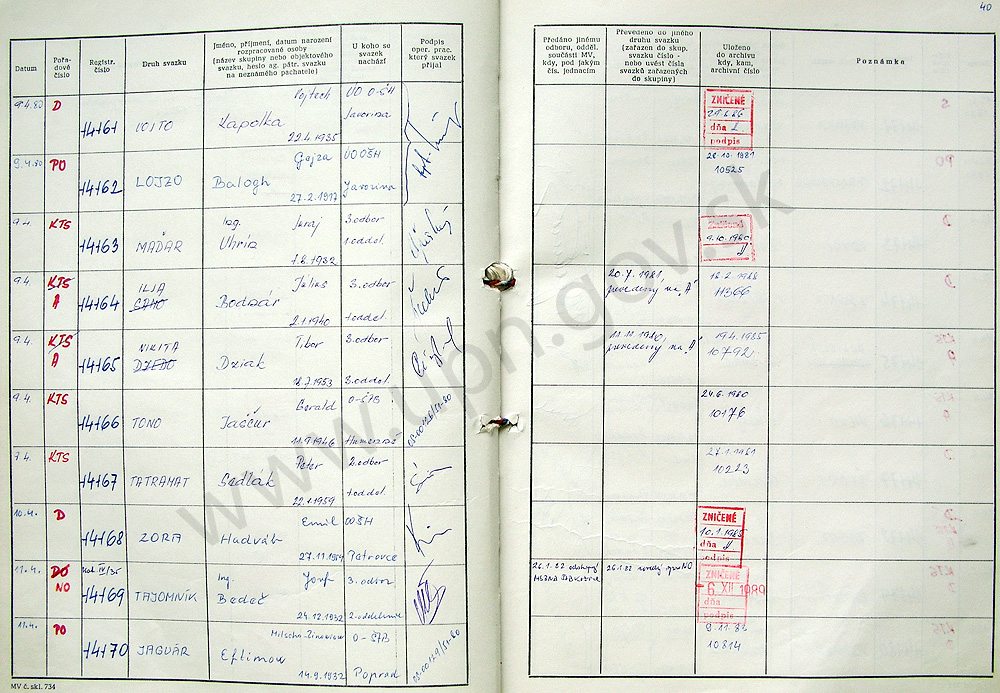 40
Datum
Pořa-
dové
číslo
Registr.
číslo
Druh svazku
Jméno, příjmení, datum narození
rozpracované osoby
(název skupiny nebo objektového
svazku, heslo ag. pátr. svazku
na neznámého pachatele)
U koho se
svazek
nachází
Podpis
oper. prac.
který svazek
přijal
Předáno jinému
odboru, odděl.
součásti MV,
kdy, pod jakým
čís. jednacím
Převedeno do jiného
druhu svazku
(zařazen do skup.
svazku číslo
nebo uvést čísla
svazků zařazených
do skupiny)
Uloženo
do archivu
kdy, kam,
archivní číslo
Poznámka
9.4.80 D 14161 VOJTO Vojtech
Kapolka
22.4.1935
Javorina
ZNIČENÉ
dňa
podpis
9.4.80 PO 14162 LOJZO Gejza
Balogh
27.2.1917
VO OŠH
Javorina
28.10.1981
10525
9.4. KTS 14163 MAĎAR Ing. Juraj
Uhrin
7.6.1932
3.odbor
1.oddel.
9.10.1980
9.4. KTS
A
14164 ILJA
Július
Bodnár
2.1.1940
3.odbor
1.oddel.
20.7.1981
prevedený na "A"
18.2.1988
11366
9.4. KTS
A
14165 NIKITA
DZEDO
Tibor
Dziak
18.7.1953
3.odbor
3.oddel.
11.12.1980,
prevedený na "A"
19.4.1985
10792
9.4. KTS 14166 TONO Gerald
Jaščur
11.9.1946
O-ŠtB
Humenné
24.6.1980
10176
9.4. KTS 14167 TATRAMAT Peter
Sedlák
22.1.1959
2.odbor
1.oddel.
27.1.1981
10223
10.4. D 14168 ZORA Emil
27.11.1914
OOŠH
Petrovce
ZNIČENÉ
10.1.1985
dňa
podpis
11.4. DO
NO
14169 TAJOMNÍK Ing. Jozef
Bedeč
24.12.1932
3.odbor
2.oddelenie
26.1.82
26.1.82
NO
ZNIČENÉ
6 XII 1989
dňa
podpis
11.4. PO 14170 JAGUÁR
Eftimow
14.9.1932
O-ŠtB
Poprad
9.11.83
10814
MV č. skl. 734
www.upn.gov.sk